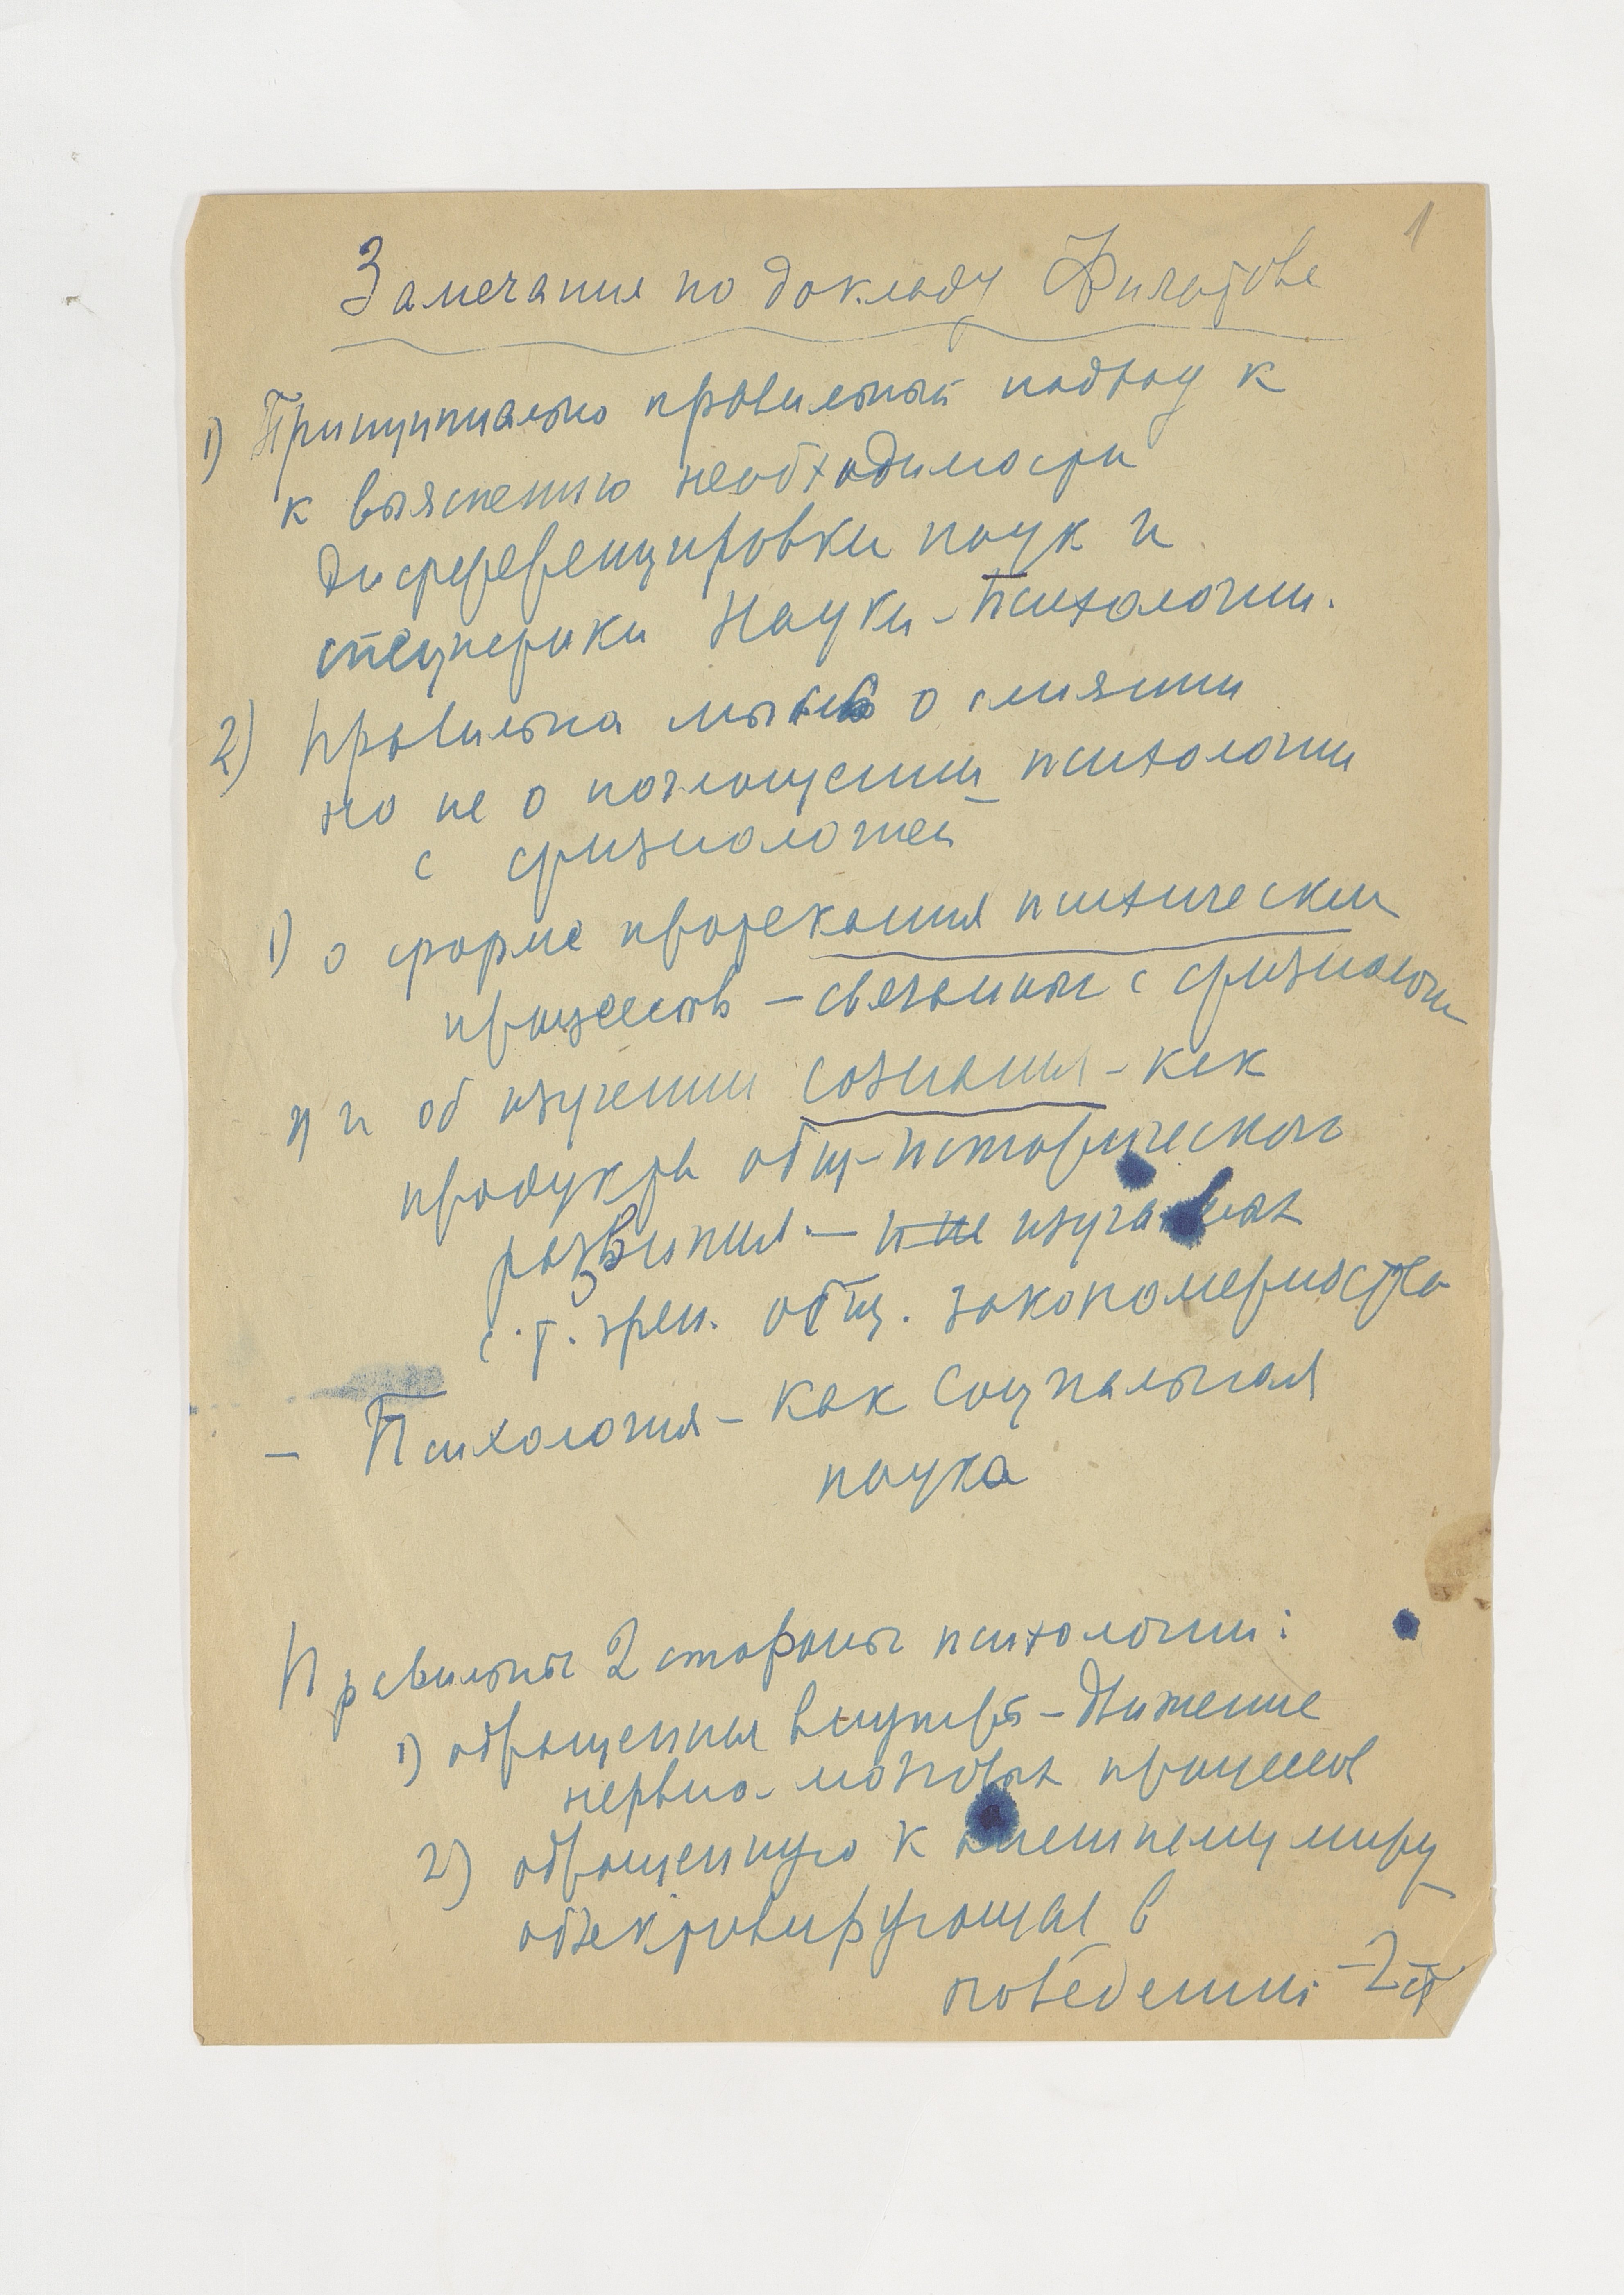 1
Замечания по докладу Филатова
1) Принципиально правильный подход к
к выяснению необходимости
дифференцировки наук и
специфики Науки – Психологии.
2) Правильна мысль о слиянии
но не о поглощении психологии
с физиологией
1) о форме протекания психически
процессов – связанных с физиологи
2) и об изучении сознания – как
продукта общ-исторического
развития – изучаемых
с.т. зрен. общ. закономерности
– Психология – как социальная
наука
Правильны 2 стороны психологии:
1) обращенная внутрь – движение
нервно-мозговых процессов
2) обращенную к внешнему миру
объективирующая в
поведении –